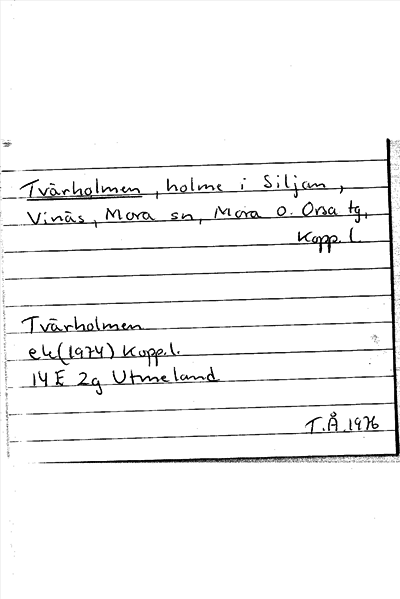 Tvärholmen, holme i Siljan,
Vinäs, Mora sn, Mora o. Orsa tg,
Kopp. l.
Tvärholmen
ek (1974) Kopp. l.
14 E 2g Utmeland
T.Å. 1976